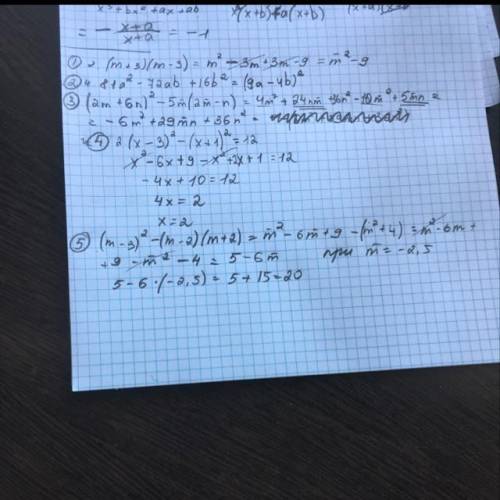 = - x+a / x+a = -1
① (m+3)(m-3) = m² - 3m + 3m - 9 = m² - 9
② 81a² - 72ab + 16b² = (9a - 4b)²
③ (2m+6n)² - 5m(2m-n) = 4m² + 24nm + 36n² - 10m² + 5mn =
= -6m² + 29mn + 36n²
④ (x-3)² - (x+1)² = 12
x² - 6x + 9 - x² + 2x + 1 = 12
-4x + 10 = 12
4x = 2
x = 2
⑤ (m-3)² - (m-2)(m+2) = m² - 6m + 9 - (m² + 4) = m² - 6m +
+ 9 - m² - 4 = 5 - 6m при m = -2,5
5 - 6 · (-2,5) = 5 + 15 = 20